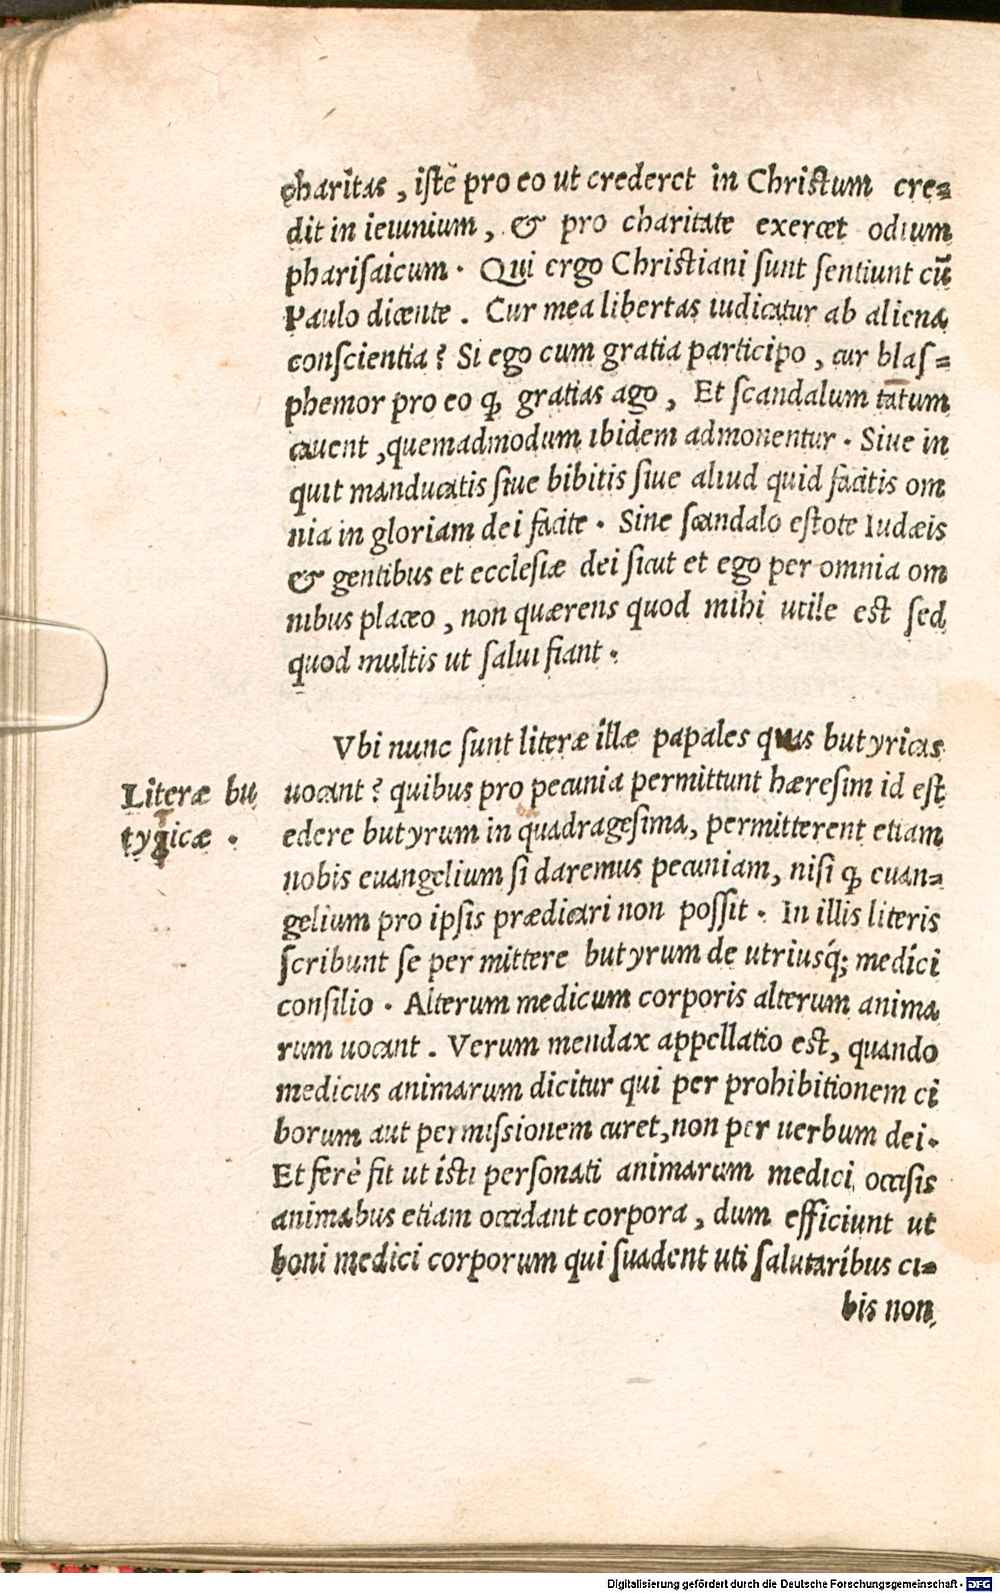 charitas, iste pro eo ut crederet in Christum cre=
dit in ieiunium, & pro charitate exercet odium
pharisaicum. Qui ergo Christiani sunt sentiunt cū
Paulo dicente. Cur mea libertas iudicatur ab aliena
conscientia? Si ego cum gratia participo, cur blas=
phemor pro eo ꝙ gratias ago, Et scandalum tātum
cauent, quemadmodum ibidem admonentur. Siue in
quit manducatis siue bibitis siue aliud quid facitis om
nia in gloriam dei facite. Sine scandalo estote Iudæis
& gentibus et ecclesiæ dei sicut et ego per omnia om
nibus placeo, non quærens quod mihi utile est sed
quod multis ut salui fiant.
Vbi nunc sunt literæ illæ papales quas butyricas
Literæ bu
tyricæ.
uocant? quibus pro pecunia permittunt hæresim id est
edere butyrum in quadragesima, permitterent etiam
nobis euangelium si daremus pecuniam, nisi ꝙ euan=
gelium pro ipsis prædicari non possit. In illis literis
scribunt se permittere butyrum de utriusq́; medici
consilio. Alterum medicum corporis alterum anima
rum uocant. Verum mendax appellatio est, quando
medicus animarum dicitur qui per prohibitionem ci
borum aut permissionem curet, non per uerbum dei.
Et ferè fit ut isti personati animarum medici, occisis
animabus etiam occidant corpora, dum efficiunt ut
boni medici corporum qui suadent uti salutaribus ci=
bis non
Digitalisierung gefördert durch die Deutsche Forschungsgemeinschaft - DFG